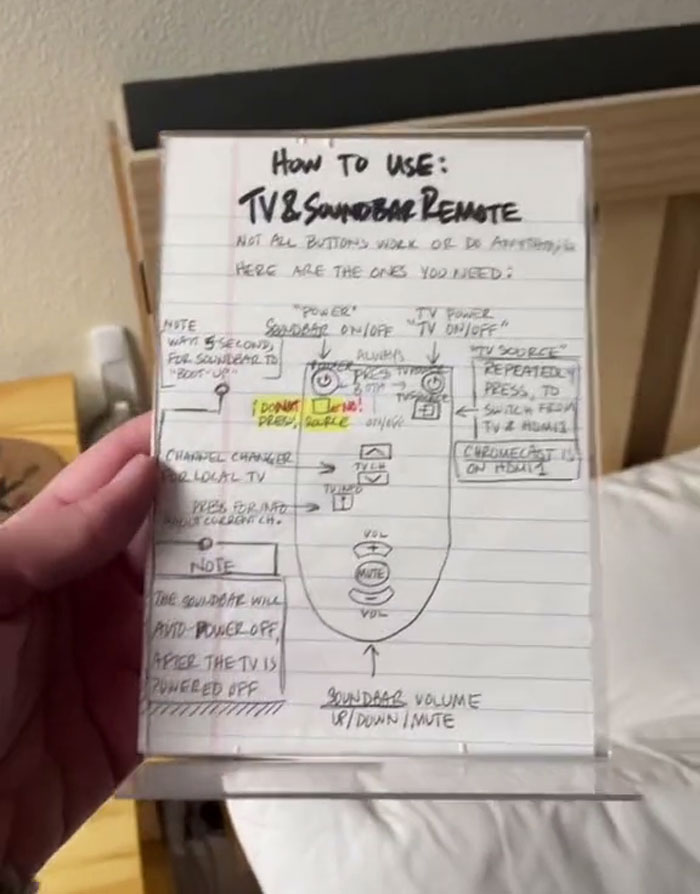 HOW TO USE:
TV & SOUNDBAR REMOTE
NOT ALL BUTTONS WORK OR DO ANYTHING
HERE ARE THE ONES YOU NEED:
"POWER"
SOUNDBAR ON/OFF
TV POWER
"TV ON/OFF"
NOTE
WAIT 5 SECONDS,
FOR SOUNDBAR TO
"BOOT-UP"
ALWAYS
PRESS
BOTH →
ON/OFF
POWER
TV SOURCE
¡DO NOT
PRESS, SOURCE
"TV SOURCE"
REPEATEDLY
PRESS, TO
SWITCH FROM
TV & HDMI1
CHROMECAST IS
ON HDMI1
CHANNEL CHANGER
FOR LOCAL TV
TV CH
TV INFO
PRESS FOR INFO
ABOUT CURRENT CH.
VOL
+
MUTE
-
VOL
NOTE
THE SOUNDBAR WILL
AUTO-POWER OFF,
AFTER THE TV IS
POWERED OFF
SOUNDBAR VOLUME
UP/DOWN/MUTE